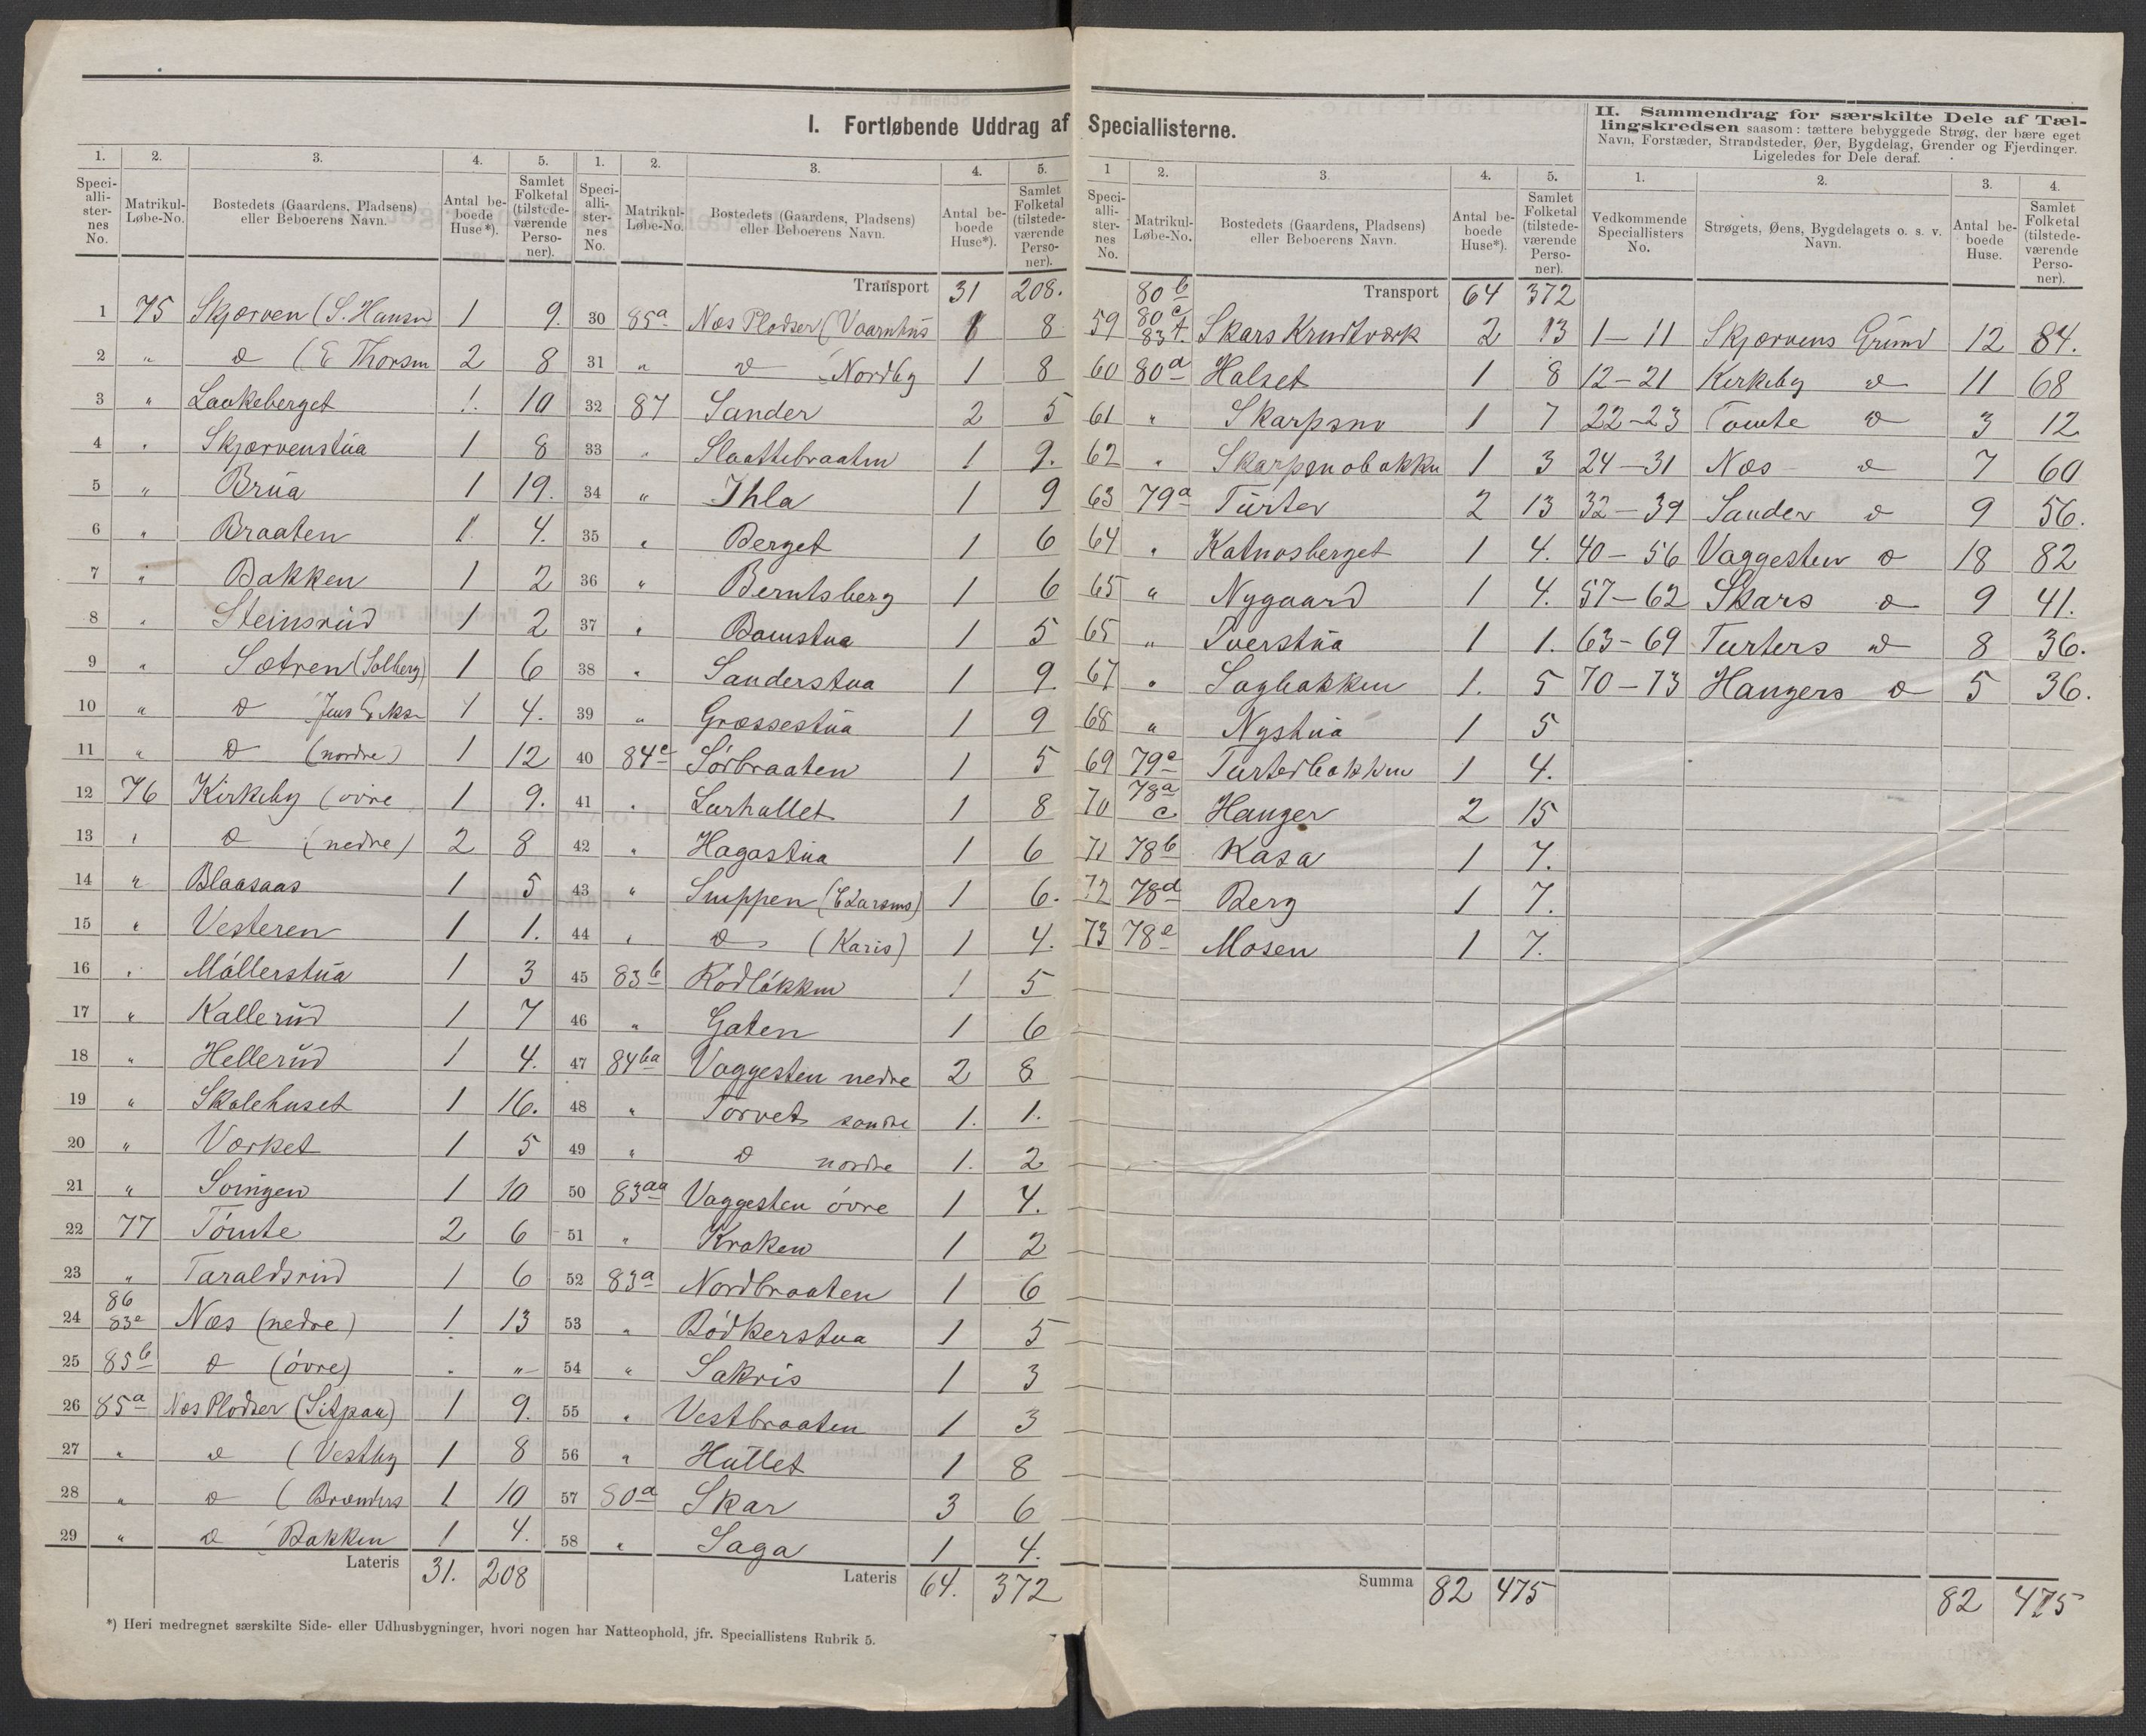 I. Fortløbende Uddrag af Speciallisterne.
1. 2. 3. 4. 5.
Specialli-sternes No. Matrikul-Løbe-No. Bostedets (Gaardens, Pladsens) eller Beboerens Navn. Antal beboede Huse*). Samlet Folketal (tilstedeværende Personer).
1 75 Skjærven (S. Hansn 1 9.
2 " D (E Thorsm 2 8
3 " Laakeberget 1. 10
4 " Skjærvenstua 1 8
5 " Brua 1 19.
6 " Braaten 1 4.
7 " Bakken 1 2
8 " Steinsrud 1 2
9 " Sætren (Solberg) 1 6
10 " D Jens Eriks. 1 4.
11 " D (nordre) 1 12
12 76 Kirkeby (øvre 1 9.
13 " D (nedre) 2 8
14 " Blaasaas 1 5
15 " Vesteren 1 1.
16 " Møllerstua 1 3
17 " Kallerud 1 7
18 " Hellerud 1 4.
19 " Skolehuset 1 16.
20 " Værket 1 5
21 " Svingen 1 10
22 77 Tømte 2 6
23 " Taraldsrud 1 6
24 86 83e Næs (nedre) 1 13
25 85b D (øvre) " "
26 85a Næs Pladser (Sitpau) 1 9.
27 " D (Vestby 1 8
28 " D (Brænders 1 10
29 " D Bakken 1 4.
Lateris 31. 208
1. 2. 3. 4. 5.
Specialli-sternes No. Matrikul-Løbe-No. Bostedets (Gaardens, Pladsens) eller Beboerens Navn. Antal beboede Huse*). Samlet Folketal (tilstedeværende Personer).
Transport 31 208.
30 85a Næs Pladser (Vaarnhus 1 8
31 " D Nordby 1 8
32 87 Sander 2 5
33 " Slaattebraaten 1 9.
34 " Ihla 1 9
35 " Berget 1 6
36 " Berntsberg 1 6
37 " Bamstua 1 5
38 " Sanderstua 1 9.
39 " Græssestua 1 9
40 84c Sørbraaten 1 5
41 " Larhallet 1 8
42 " Hagastua 1 6
43 " Snippen (E Larsens) 1 6.
44 " D (Karis) 1 4.
45 83b Rødløkken 1 5
46 " Gaten 1 6
47 84ba Vaggesten nedre 2 8
48 " Torvet søndre 1. 1.
49 " D nordre 1. 2
50 83aa Vaggesten øvre 1 4.
51 " Kraken 1 2
52 83a Nordbraaten 1 6
53 " Bødkerstua 1 5
54 " Sakris 1 3
55 " Vestbraaten 1 3
56 " Hullet 1 8
57 80a Skar 3 6
58 " Saga 1 4.
Lateris 64. 372
1 2. 3. 4. 5.
Specialli-sternes No. Matrikul-Løbe-No. Bostedets (Gaardens, Pladsens) eller Beboerens Navn. Antal beboede Huse*). Samlet Folketal (tilstedeværende Personer).
Transport 64 372
59 80b 80c 83f. Skars Krudtværk 2 13
60 80a Halset 1 8
61 " Skarpsno 1 7
62 " Skarpsnobakken 1 3
63 79a Turter 2 13
64 " Katnosberget 1 4.
65 " Nygaard 1 4.
65 " Tverstua 1 1.
67 " Sagbakken 1. 5
68 " Nystua 1 5
69 79c Turterbakken 1 4.
70 78a c Hanger 2 15
71 78b Kasa 1 7.
72 78d Berg 1 7.
73 78e Mosen 1 7.
Summa 82 475
II. Sammendrag for særskilte Dele af Tællingskredsen saasom: tættere bebyggede Strøg, der bære eget Navn, Forstæder, Strandsteder, Øer, Bygdelag, Grender og Fjerdinger. Ligeledes for Dele deraf.
1. 2. 3. 4.
Vedkommende Speciallisters No. Strøgets, Øens, Bygdelagets o. s. v. Navn. Antal beboede Huse. Samlet Folketal (tilstedeværende Personer).
1–11 Skjærvens Grund 12 84.
12–21 Kirkeby D 11 68
22–23 Tømte D 3 12
24–31 Næs D 7 60
32–39 Sander D 9 56.
40–56 Vaggesten D 18 82
57–62 Skars D 9 41.
63–69 Turters D 8 36.
70–73 Hangers D 5 36.
82 475
*) Heri medregnet særskilte Side- eller Udhusbygninger, hvori nogen har Natteophold, jfr. Speciallistens Rubrik 5.